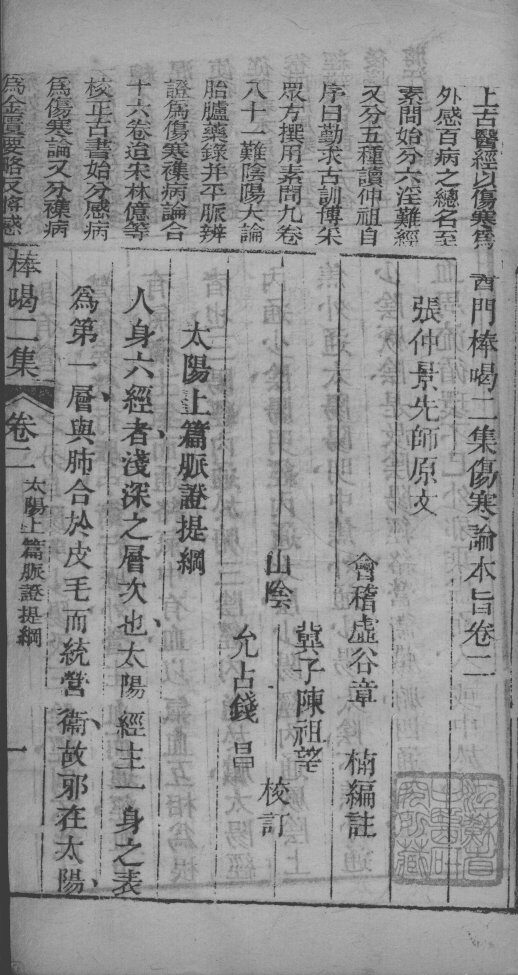 上古醫經以傷寒爲
外感百病之總名至
素問始分六淫難經
又分五種讀仲祖自
序曰勤求古訓博采
眾方撰用素問九卷
八十一難陰陽大論
胎臚藥錄并平脈辨
證爲傷寒襍病論合
十六卷迨宋林億等
校正古書始分感病
爲傷寒論又分襍病
爲金匱要略又將感
醫門棒喝二集傷寒論本旨卷二
張仲景先師原文
會稽虛谷章 楠編註
山陰
蓂子陳祖望
允占錢 昌
校訂
太陽上篇脈證提綱
人身六經者淺深之層次也太陽經主一身之表
爲第一層與肺合於皮毛而統營衞故邪在太陽
棒喝二集
卷二
太陽上篇脈證提綱
一